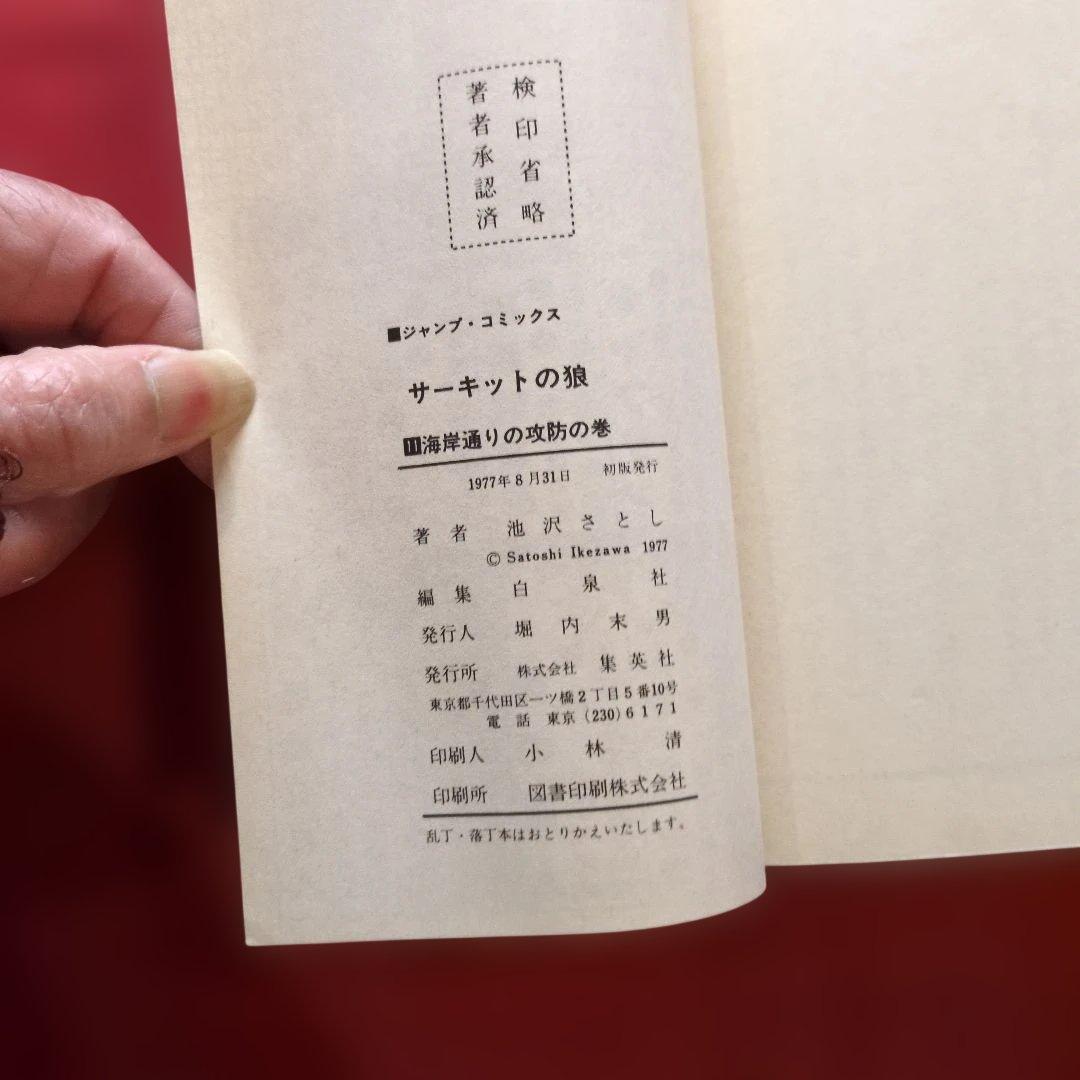 検印省略
著者承認済
■ジャンプ・コミックス
サーキットの狼
11海岸通りの攻防の巻
1977年8月31日 初版発行
著者 池沢さとし
© Satoshi Ikezawa 1977
編集 白泉社
発行人 堀内末男
発行所 株式会社 集英社
東京都千代田区一ツ橋2丁目5番10号
電話 東京(230)6171
印刷人 小林清
印刷所 図書印刷株式会社
乱丁・落丁本はおとりかえいたします。